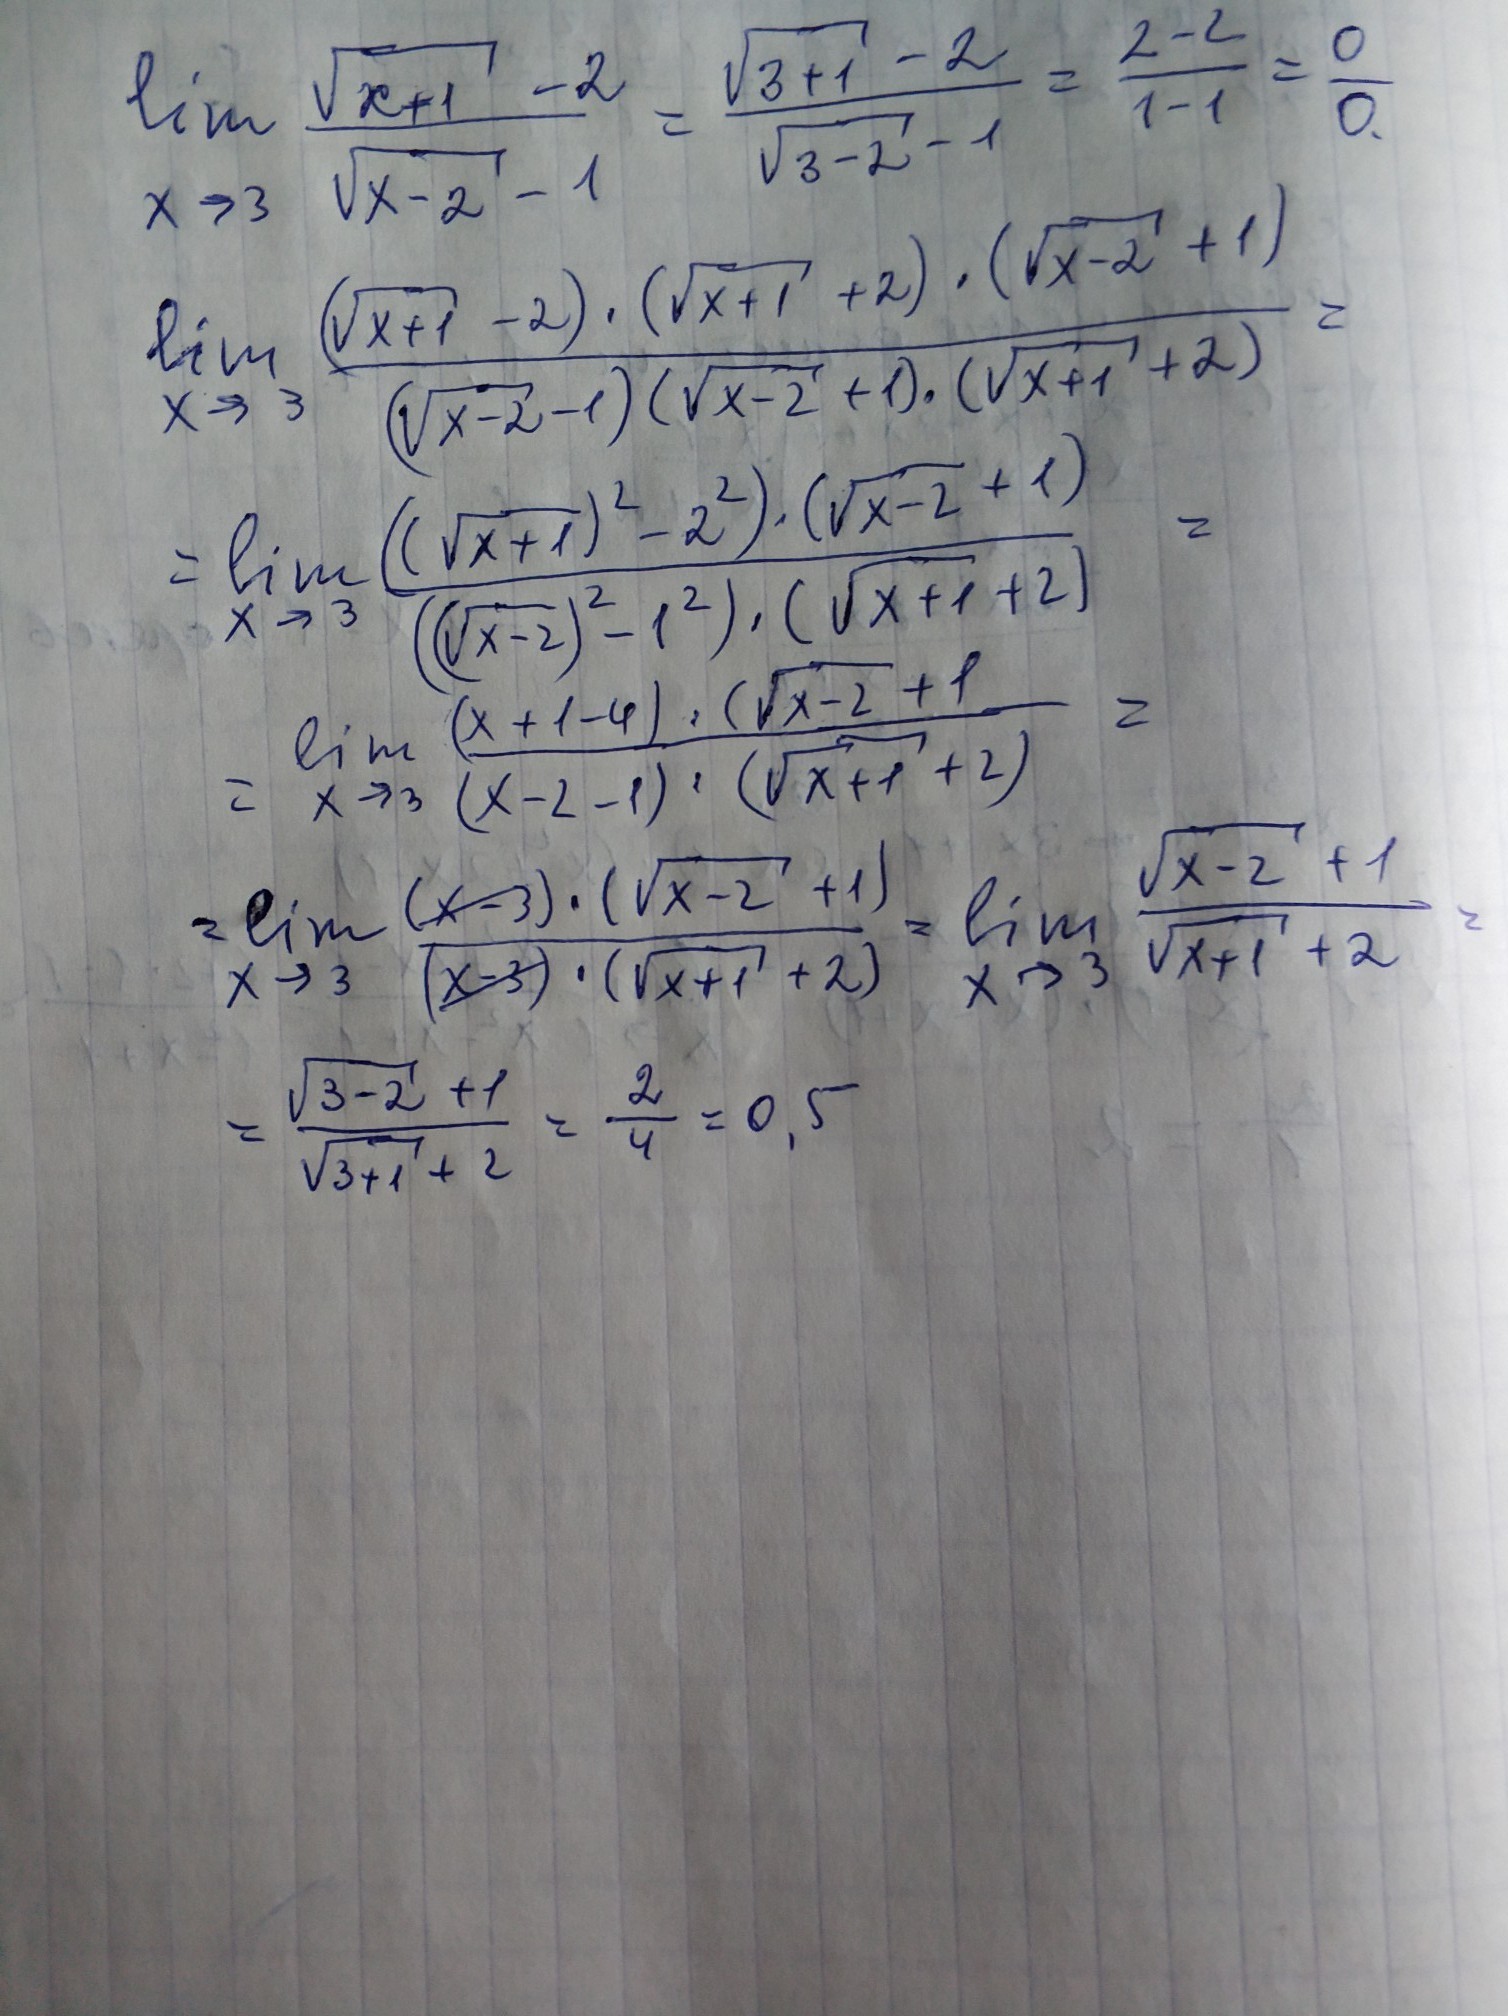 lim x→3 (√(x+1) - 2)/(√(x-2) - 1) = (√(3+1) - 2)/(√(3-2) - 1) = (2-2)/(1-1) = 0/0.
lim x→3 ((√(x+1) - 2)·(√(x+1) + 2)·(√(x-2) + 1))/((√(x-2) - 1)(√(x-2) + 1)·(√(x+1) + 2)) =
= lim x→3 (((√(x+1))² - 2²)·(√(x-2) + 1))/(((√(x-2))² - 1²)·(√(x+1) + 2)) =
= lim x→3 ((x+1-4)·(√(x-2) + 1)/((x-2-1)·(√(x+1) + 2)) =
= lim x→3 ((x-3)·(√(x-2) + 1))/((x-3)·(√(x+1) + 2)) = lim x→3 (√(x-2) + 1)/(√(x+1) + 2) =
= (√(3-2) + 1)/(√(3+1) + 2) = 2/4 = 0,5